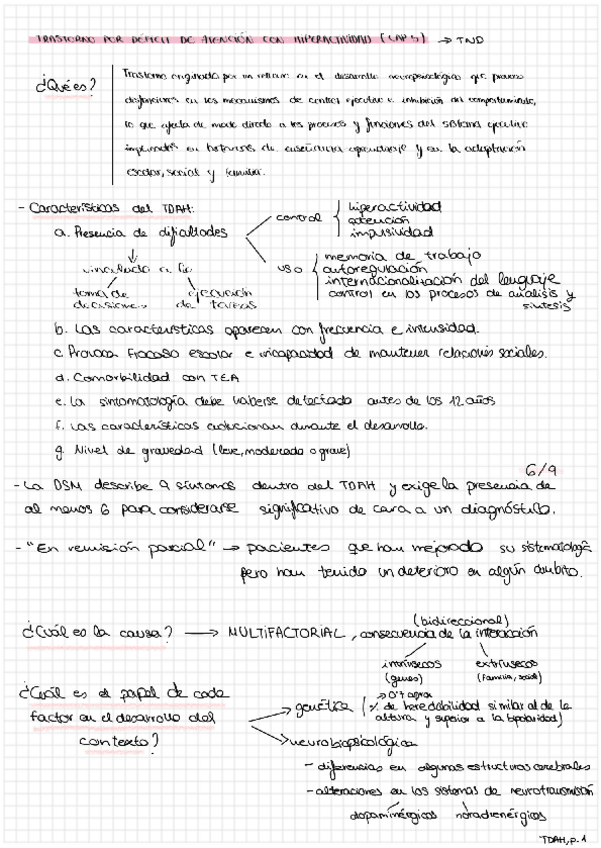 TRASTORNO POR DÉFICIT DE ATENCIÓN CON HIPERACTIVIDAD (CAP 5) → TND
¿Qué es?
Trastorno originado por un retraso en el desarrollo neuropsicológico que provoca
disfunciones en los mecanismos de control ejecutivo e inhibición del comportamiento,
lo que afecta de modo directo a los procesos y funciones del sistema ejecutivo
implicados en procesos de enseñanza aprendizaje y en la adaptación
escolar, social y familiar.
- Características del TDAH:
a. Presencia de dificultades
control
hiperactividad
atención
impulsividad
uso
memoria de trabajo
autoregulación
internacionalización del lenguaje
control en los procesos de análisis y
síntesis
vinculado a la
toma de decisiones
ejecución de tareas
b. Las características aparecen con frecuencia e intensidad.
c. Provoca fracaso escolar e incapacidad de mantener relaciones sociales.
d. Comorbilidad con TEA
e. La sintomatología debe haberse detectado antes de los 12 años
f. Las características evolucionan durante el desarrollo.
g. Nivel de gravedad (leve, moderado o grave)
6/9
- La DSM describe 9 síntomas dentro del TDAH y exige la presencia de
al menos 6 para considerarse significativo de cara a un diagnóstico.
- "En remisión parcial" → pacientes que han mejorado su sistematología
pero han tenido un deterioro en algún ámbito.
¿Cuál es la causa? → MULTIFACTORIAL, consecuencia de la interacción
(bidireccional)
intrínsecos
(genes)
extrínsecos
(familia, social)
¿Cuál es el papel de cada
factor en el desarrollo del
contexto?
→ genética (% de heredabilidad similar al de la
altura y superior a la bipolaridad)
→ neurobiopsicológica
- diferencias en algunas estructuras cerebrales
- alteraciones en los sistemas de neurotransmisión
dopaminérgicos noradrenérgicos
TDAH, p. 1